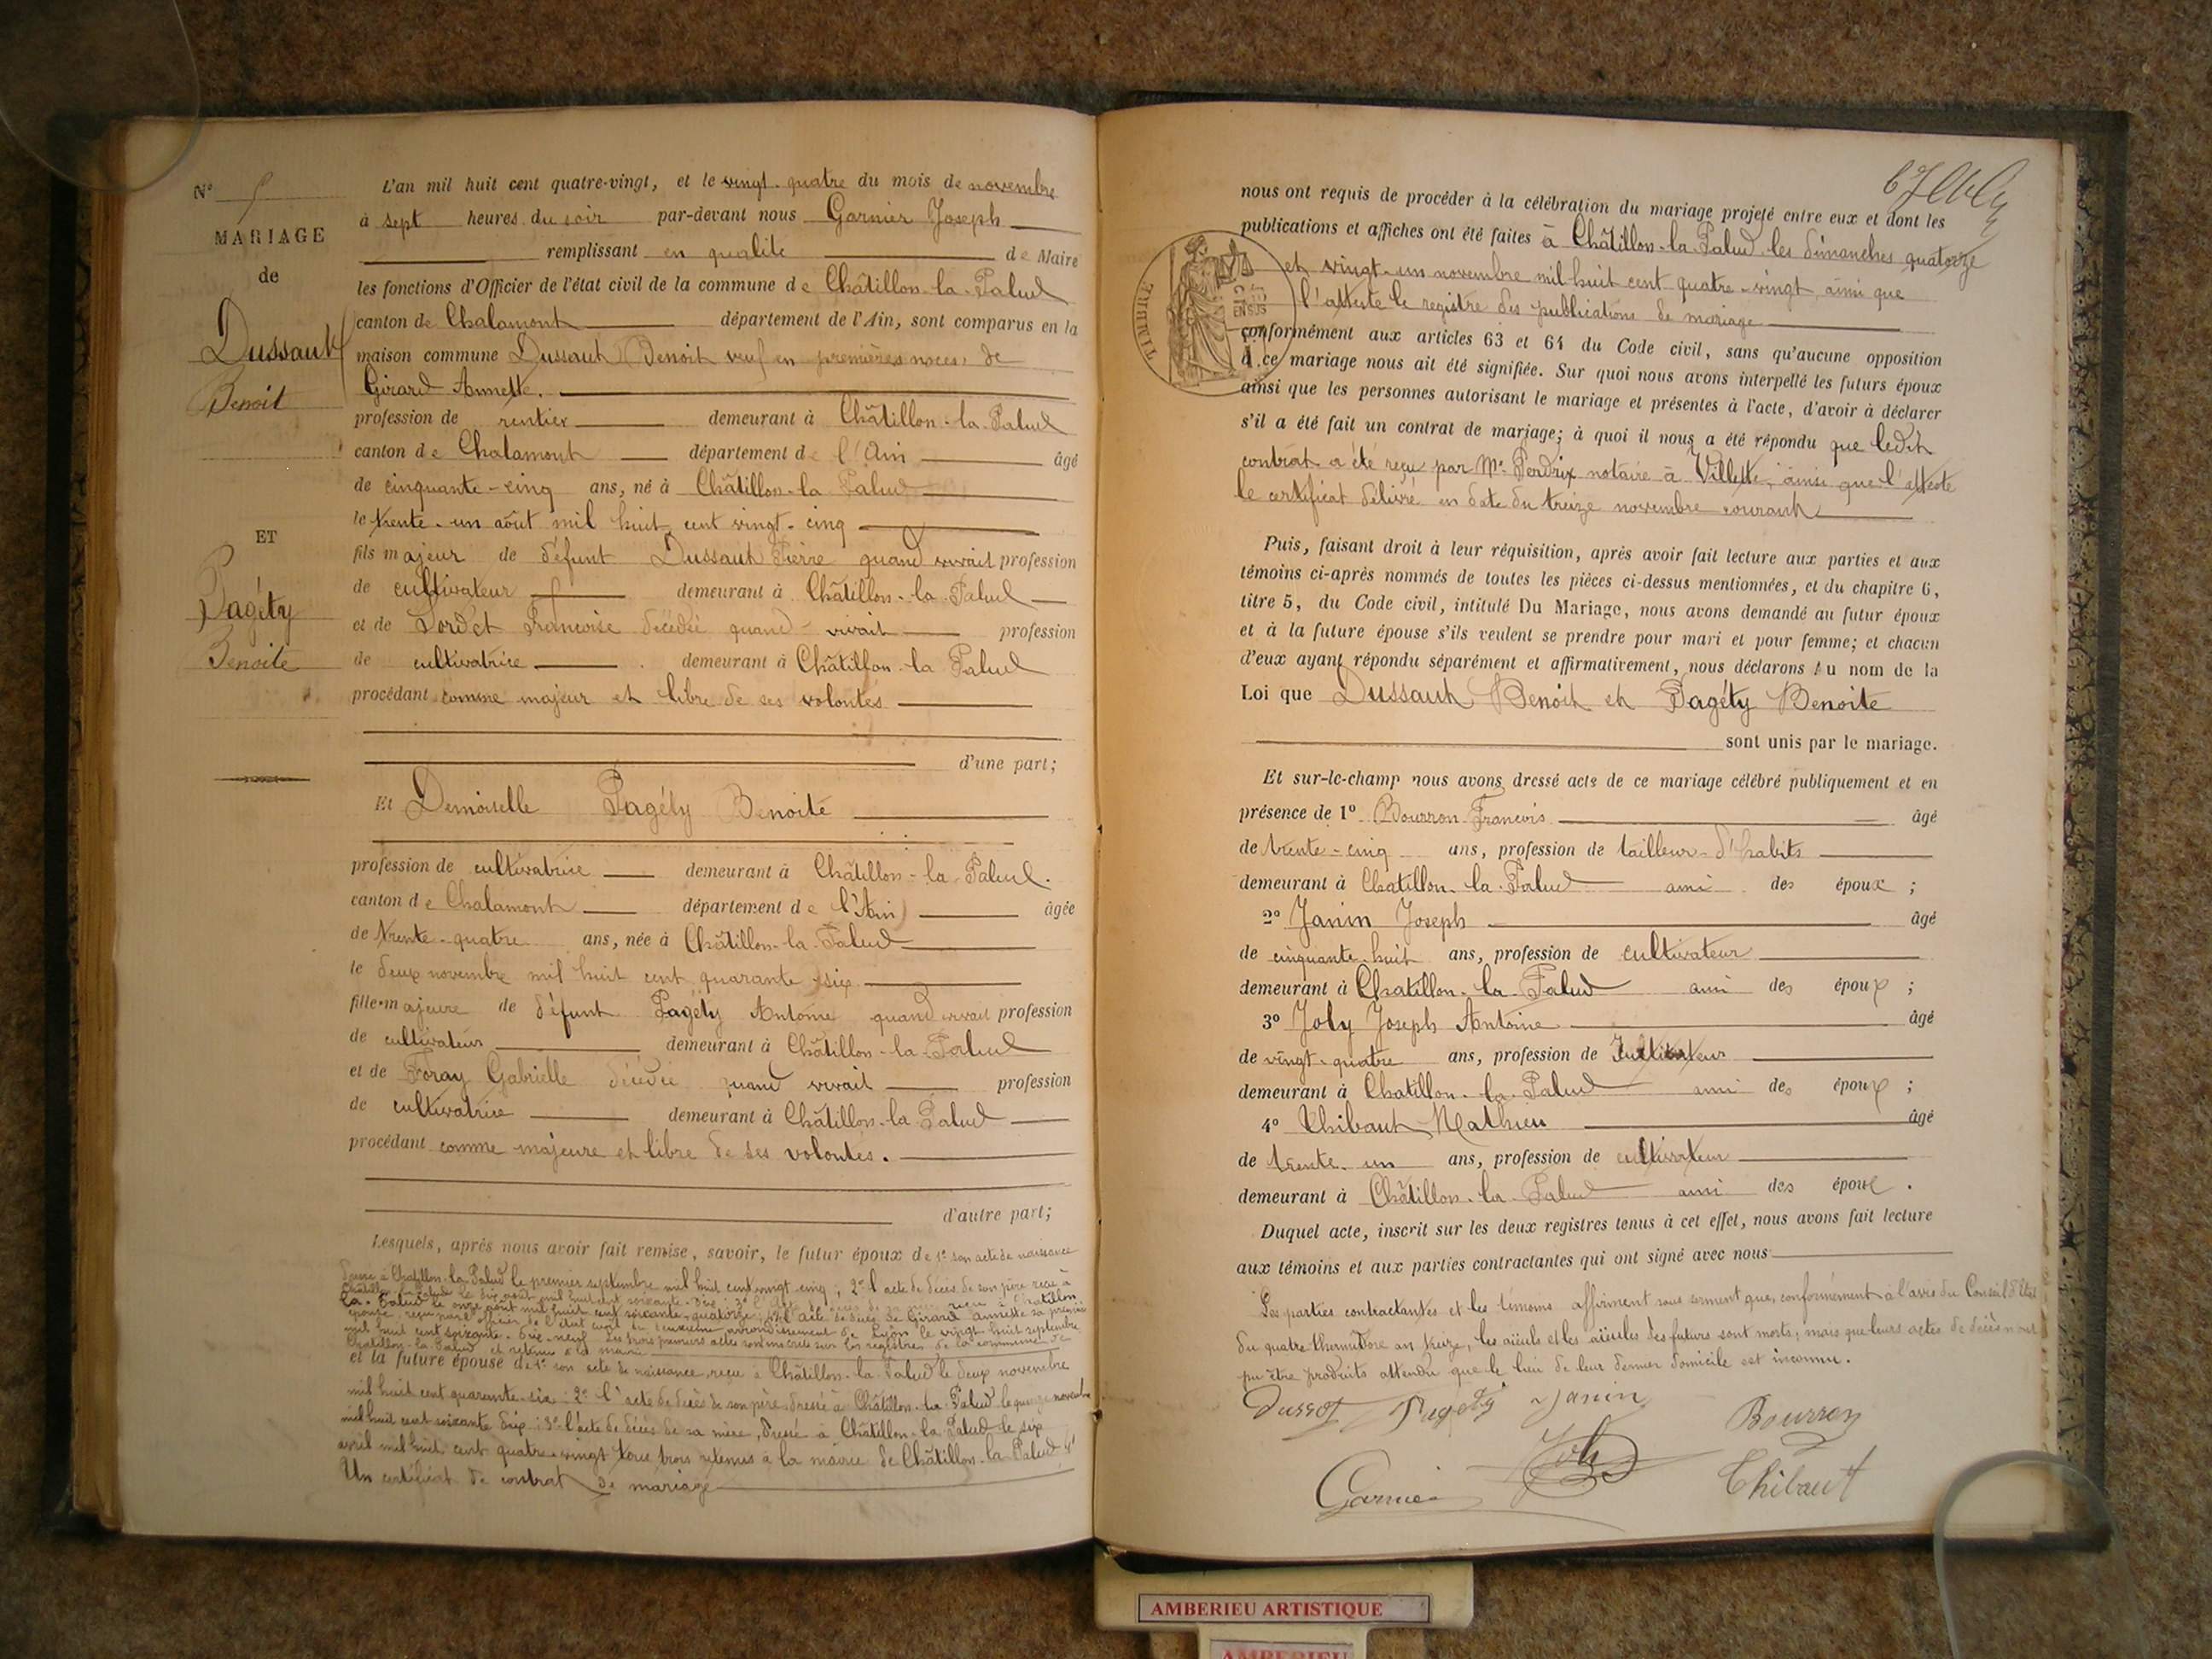 N° 5
MARIAGE
de
Dussaut
Benoit
ET
Pagéty
Benoite
L'an mil huit cent quatre-vingt, et le vingt-quatre du mois de novembre
à sept heures du soir par-devant nous Garnier Joseph
remplissant en qualité de Maire
les fonctions d'Officier de l'état civil de la commune de Châtillon-la-Palud
canton de Chalamont département de l'Ain, sont comparus en la
maison commune Dussaut Benoit veuf en premières noces de
Girard Annette.
profession de rentier demeurant à Châtillon-la-Palud
canton de Chalamont département de l'Ain âgé
de cinquante-cinq ans, né à Châtillon-la-Palud
le trente-un août mil huit cent vingt-cinq
fils majeur de défunt Dussaut Pierre quand vivait profession
de cultivateur demeurant à Châtillon-la-Palud
et de Lordet Françoise décédée quand vivait profession
de cultivatrice demeurant à Châtillon-la-Palud
procédant comme majeur et libre de ses volontés
d'une part;
Et Demoiselle Pagéty Benoite
profession de cultivatrice demeurant à Châtillon-la-Palud.
canton de Chalamont département de l'Ain âgée
de trente-quatre ans, née à Châtillon-la-Palud
le deux novembre mil huit cent quarante-six
fille majeure de défunt Pagéty Antoine quand vivait profession
de cultivateur demeurant à Châtillon-la-Palud
et de Foray Gabrielle décédée quand vivait profession
de cultivatrice demeurant à Châtillon-la-Palud
procédant comme majeure et libre de ses volontés.
d'autre part;
Lesquels, après nous avoir fait remise, savoir, le futur époux de 1° son acte de naissance
dressé à Châtillon-la-Palud le premier septembre mil huit cent vingt-cinq; 2° l'acte de décès de son père reçu à
Châtillon-la-Palud le dix août mil huit cent soixante-dix; 3° l'acte de décès de sa mère reçu à Châtillon
la-Palud le onze août mil huit cent soixante-quatorze; 4° l'acte de décès de Girard Annette sa première
épouse reçu par l'officier de l'état civil du deuxième arrondissement de Lyon le vingt-huit septembre
mil huit cent soixante-dix-neuf Les trois premiers actes sont inscrits sur les registres de la commune de
Châtillon-la-Palud et retenus à la mairie
et la future épouse de 1° son acte de naissance, reçu à Châtillon-la-Palud le deux novembre
mil huit cent quarante-six; 2° l'acte de décès de son père dressé à Châtillon-la-Palud le quinze novembre
mil huit cent soixante dix; 3° l'acte de décès de sa mère, dressé à Châtillon-la-Palud le six
avril mil huit cent quatre-vingt tous trois retenus à la mairie de Châtillon-la-Palud 4°
Un certificat de contrat de mariage
nous ont requis de procéder à la célébration du mariage projeté entre eux et dont les
publications et affiches ont été faites à Châtillon-la-Palud les dimanches quatorze
et vingt-un novembre mil huit cent quatre-vingt, ainsi que
l'atteste le registre des publications de mariage
TIMBRE
conformément aux articles 63 et 64 du Code civil, sans qu'aucune opposition
à ce mariage nous ait été signifiée. Sur quoi nous avons interpellé les futurs époux
ainsi que les personnes autorisant le mariage et présentes à l'acte, d'avoir à déclarer
s'il a été fait un contrat de mariage; à quoi il nous a été répondu que ledit
contrat a été reçu par Me Perdrix notaire à Villette, ainsi que l'atteste
le certificat délivré en date du treize novembre courant
Puis, faisant droit à leur réquisition, après avoir fait lecture aux parties et aux
témoins ci-après nommés de toutes les pièces ci-dessus mentionnées, et du chapitre 6,
titre 5, du Code civil, intitulé Du Mariage, nous avons demandé au futur époux
et à la future épouse s'ils veulent se prendre pour mari et pour femme; et chacun
d'eux ayant répondu séparément et affirmativement, nous déclarons Au nom de la
Loi que Dussaut Benoit et Pagéty Benoite
sont unis par le mariage.
Et sur-le-champ nous avons dressé acte de ce mariage célébré publiquement et en
présence de 1° Bourron François âgé
de trente-cinq ans, profession de tailleur-d'habits
demeurant à Chatillon-la-Palud ami des époux;
2° Janin Joseph âgé
de cinquante-huit ans, profession de cultivateur
demeurant à Chatillon-la-Palud ami des époux;
3° Joly Joseph Antoine âgé
de vingt-quatre ans, profession de Instituteur
demeurant à Chatillon-la-Palud ami des époux;
4° Thibaut Mathieu âgé
de trente-un ans, profession de cultivateur
demeurant à Châtillon-la-Palud ami des époux.
Duquel acte, inscrit sur les deux registres tenus à cet effet, nous avons fait lecture
aux témoins et aux parties contractantes qui ont signé avec nous
Les parties contractantes et les témoins affirment sous serment que, conformément à l'avis du Conseil d'Etat
du quatre thermidor an treize, les aïeuls et les aïeules des futurs sont morts, mais que leurs actes de décès n'ont
pu être produits attendu que le lieu de leur dernier domicile est inconnu.
Dussot Pagety Janin Bourron
Joly
Garnier Thibaut
AMBERIEU ARTISTIQUE
AMBERIEU